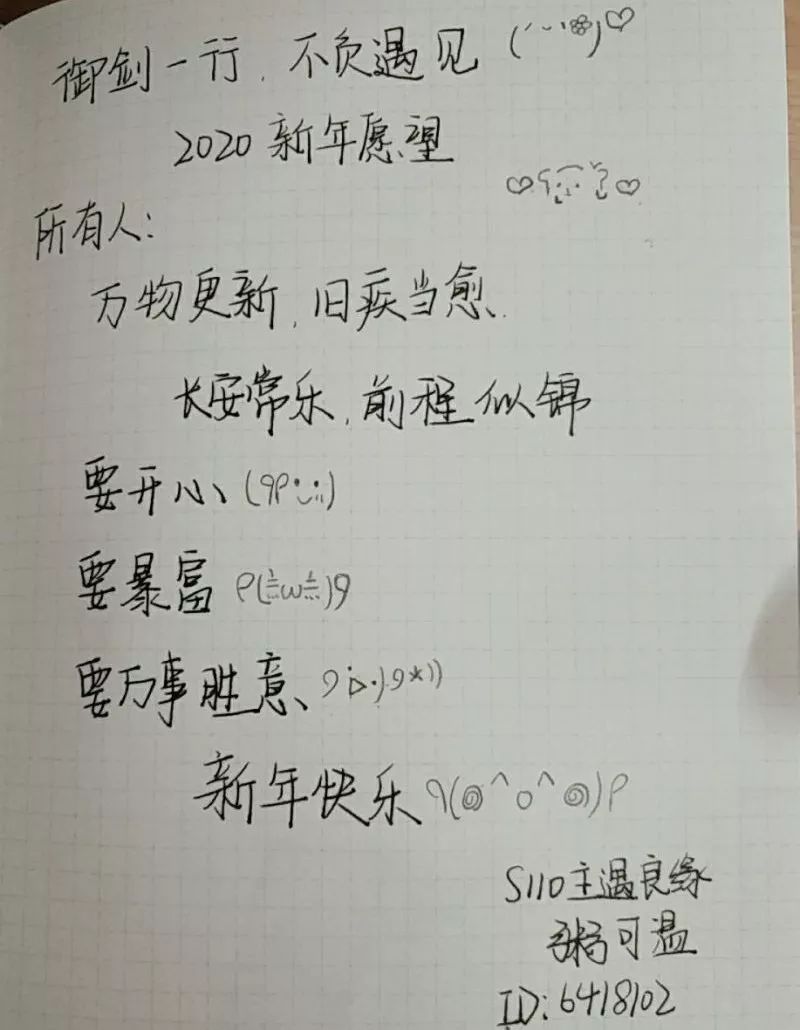 御剑一行,不负遇见 (´ˉ`❀)♡
2020 新年愿望
所有人:
万物更新,旧疾当愈、
长安常乐,前程似锦
要开心、
要暴富 ρ(ω)9
要万事胜意、
新年快乐 (@^o^@)ρ
S110主遇良缘
粥可温
ID:6418102